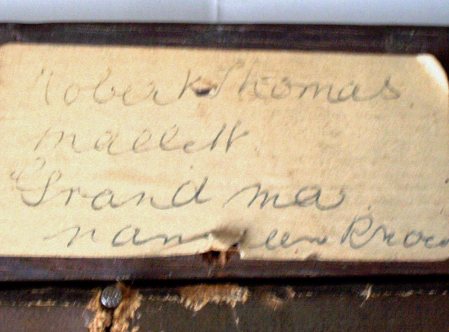 Robert Thomas
Mallett
Grand ma